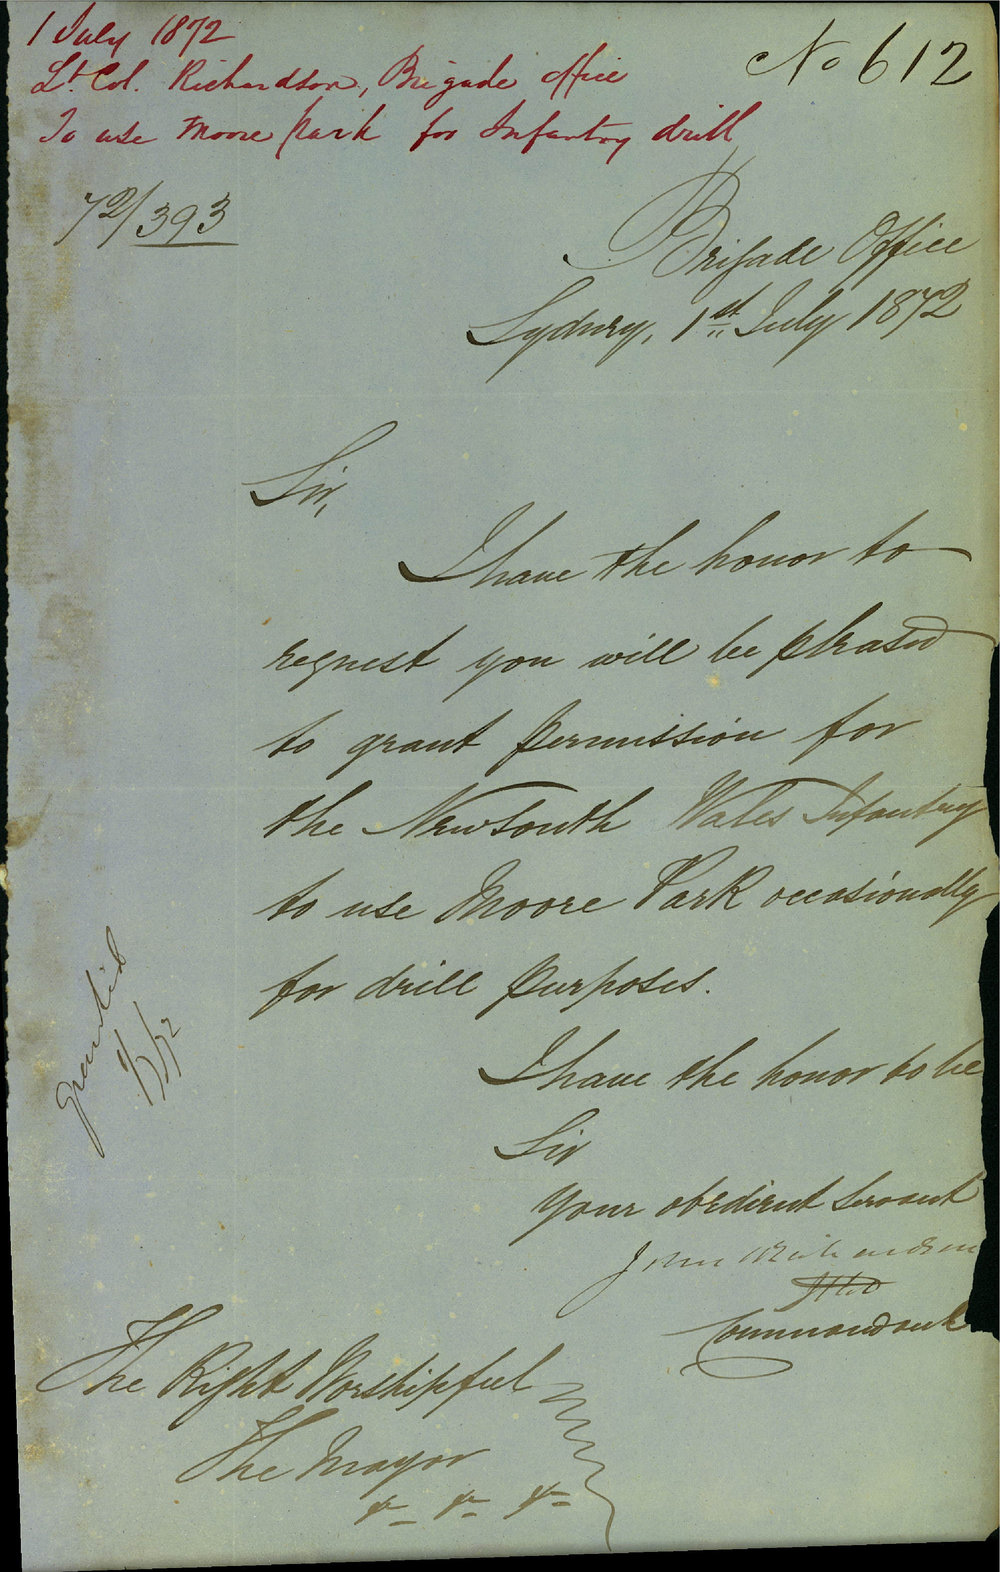 1 July 1872
Lt. Col. Richardson, Brigade Office
To use Moore Park for Infantry drill
No 612
72/393
Brigade Office
Sydney, 1st July 1872
Sir,
I have the honor to
request you will be pleased
to grant permission for
the New South Wales Infantry
to use Moore Park occasionally
for drill purposes.
I have the honor to be
Sir
Your obedient servant
John Richardson
Commandant
Granted
The Right Worshipful
The Mayor
&c &c &c